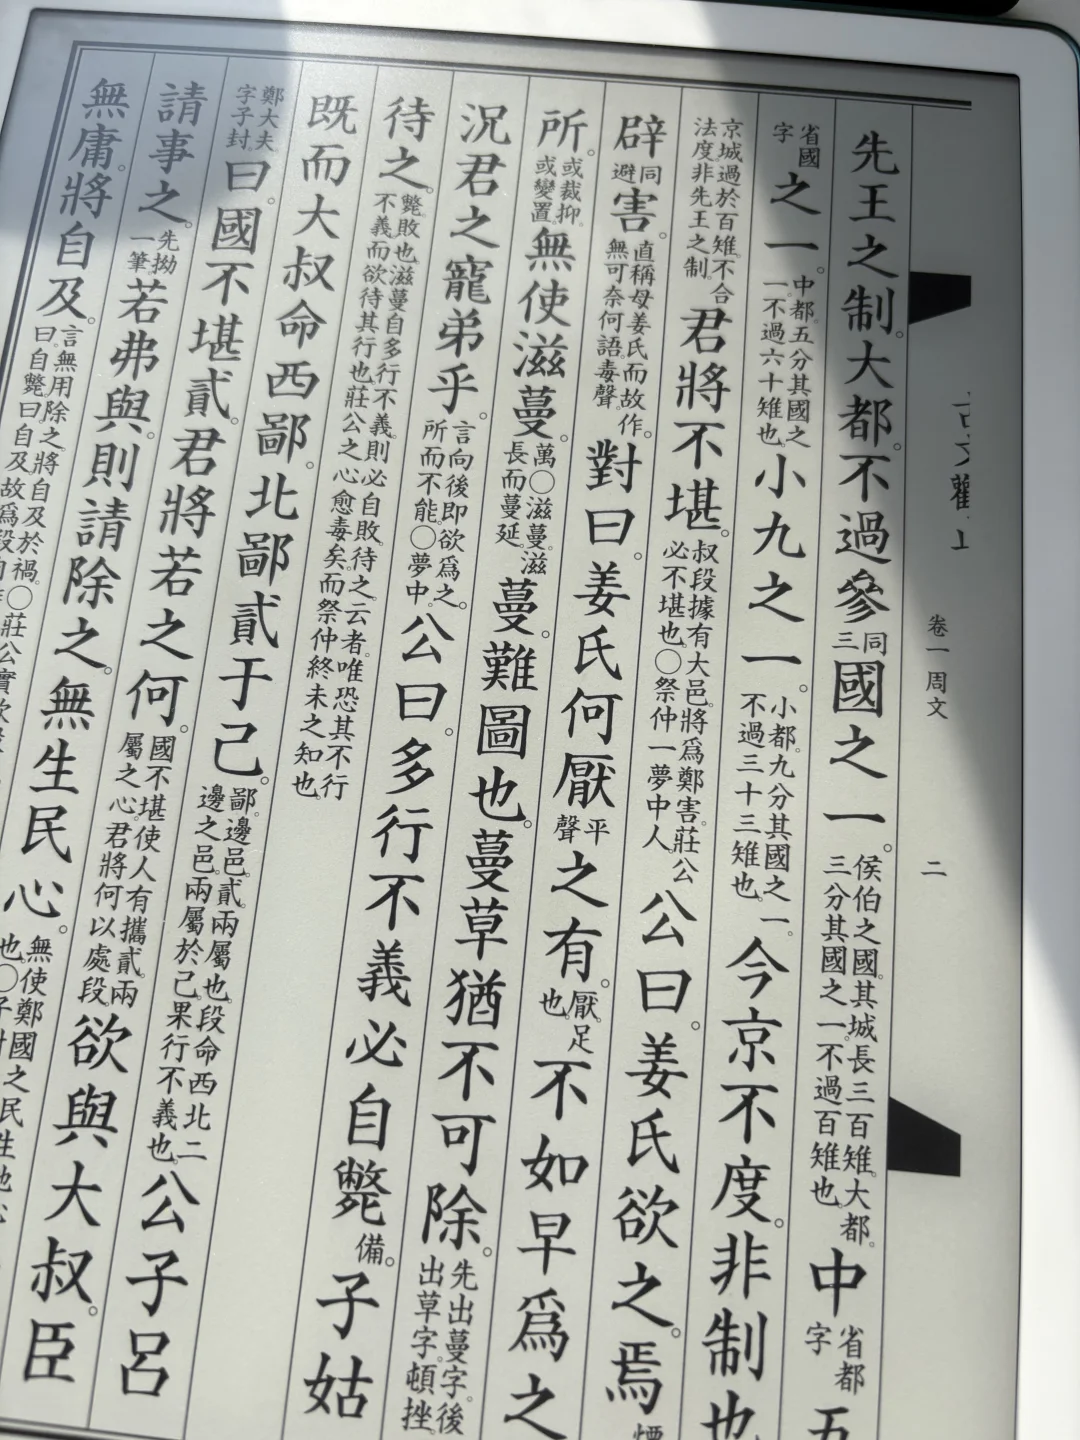 卷一 周文
二
先王之制。大都。不過參同三國之一。侯伯之國。其城長三百雉。大都。三分其國之一。不過百雉也。中省都字五
省國字之一。中都。五分其國之一。不過六十雉也。小九之一。小都。九分其國之一。不過三十三雉也。今京不度。非制也
京城過於百雉。不合法度。非先王之制。君將不堪。叔段據有大邑。將爲鄭害。莊公必不堪也。○祭仲一夢中人。公曰。姜氏欲之。焉
辟同避害。直稱母姜氏。而故作無可奈何語。毒聲。對曰。姜氏何厭平聲之有。厭。足也。不如早爲之
所。或裁抑。或變置。無使滋蔓。萬○滋蔓。滋長而蔓延。蔓。難圖也。蔓草猶不可除。先出蔓字。後出草字。頓挫
況君之寵弟乎。言向後即欲爲之。所而不能。○夢中。公曰。多行不義必自斃
待之。斃。敗也。滋蔓自多行不義。則必自敗。待之云者。唯恐其不行不義。而欲待其行也。莊公之心愈毒矣。而祭仲終未之知也。
既而大叔命西鄙。北鄙貳于己。鄙。邊邑。貳。兩屬也。段命西北二邊之邑。兩屬於己。果行不義也。公子呂
鄭大夫字子封。曰。國不堪貳。君將若之何。國不堪使人有攜貳。兩屬之心。君將何以處段。欲與大叔。臣
請事之。先拗一筆。若弗與。則請除之。無生民心。
無庸。將自及。言無用除之。將自及於禍。